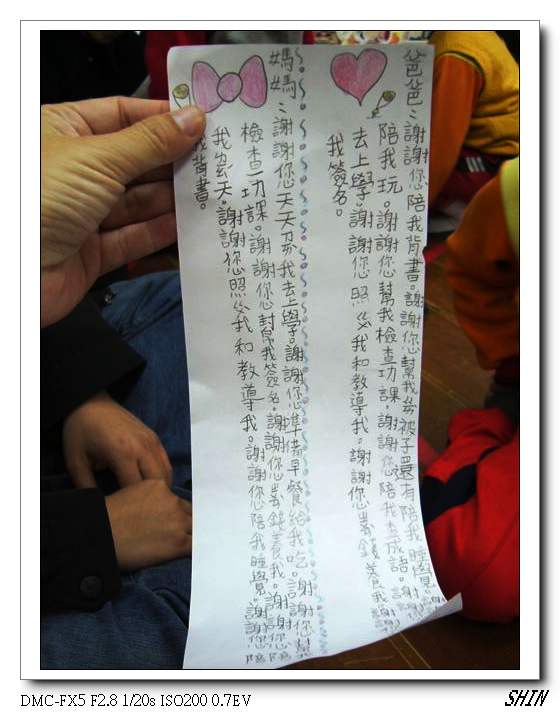 爸爸：謝謝您陪我背書。謝謝您幫我被子還有陪我睡覺。謝謝您
陪我玩。謝謝您幫我檢查功課。謝謝您陪我查成語。謝謝
去上學。謝謝您照我和教導我。謝謝您錢養我。謝謝
我簽名。
媽媽：謝謝您天天我去上學。謝謝您準備早餐給我吃。謝謝您幫
檢查功課。謝謝您幫我簽名。謝謝您錢養我。謝謝您陪
我天。謝謝您照我和教導我。謝謝您陪我睡覺。謝謝您陪
我背書。
DMC-FX5 F2.8 1/20s ISO200 0.7EV
SHIN